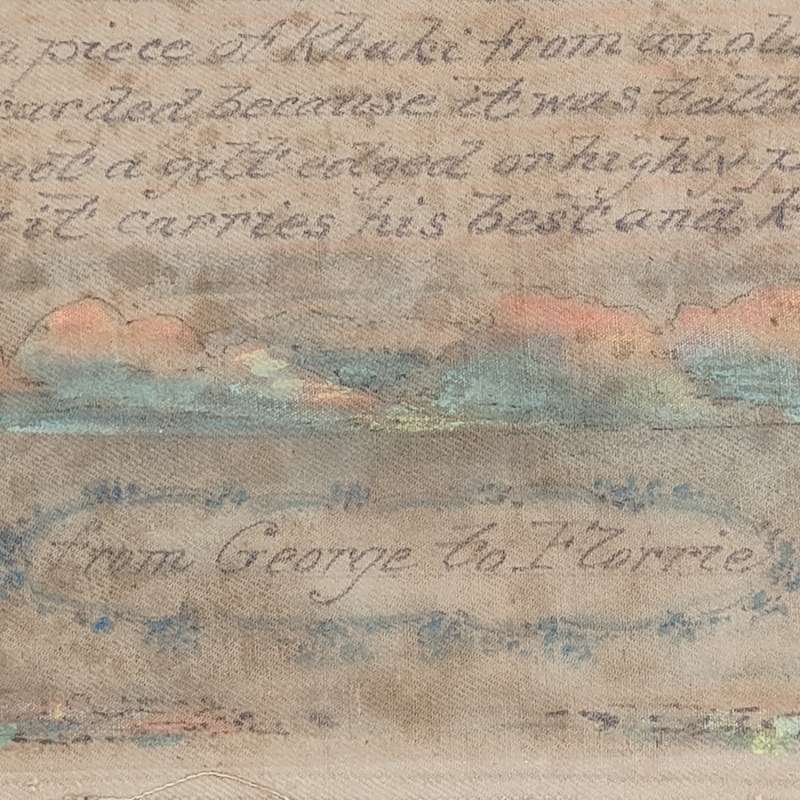 piece of Khaki from an old
carded because it was
not a gilt edged or highly
it carries his best and
from George to Florrie